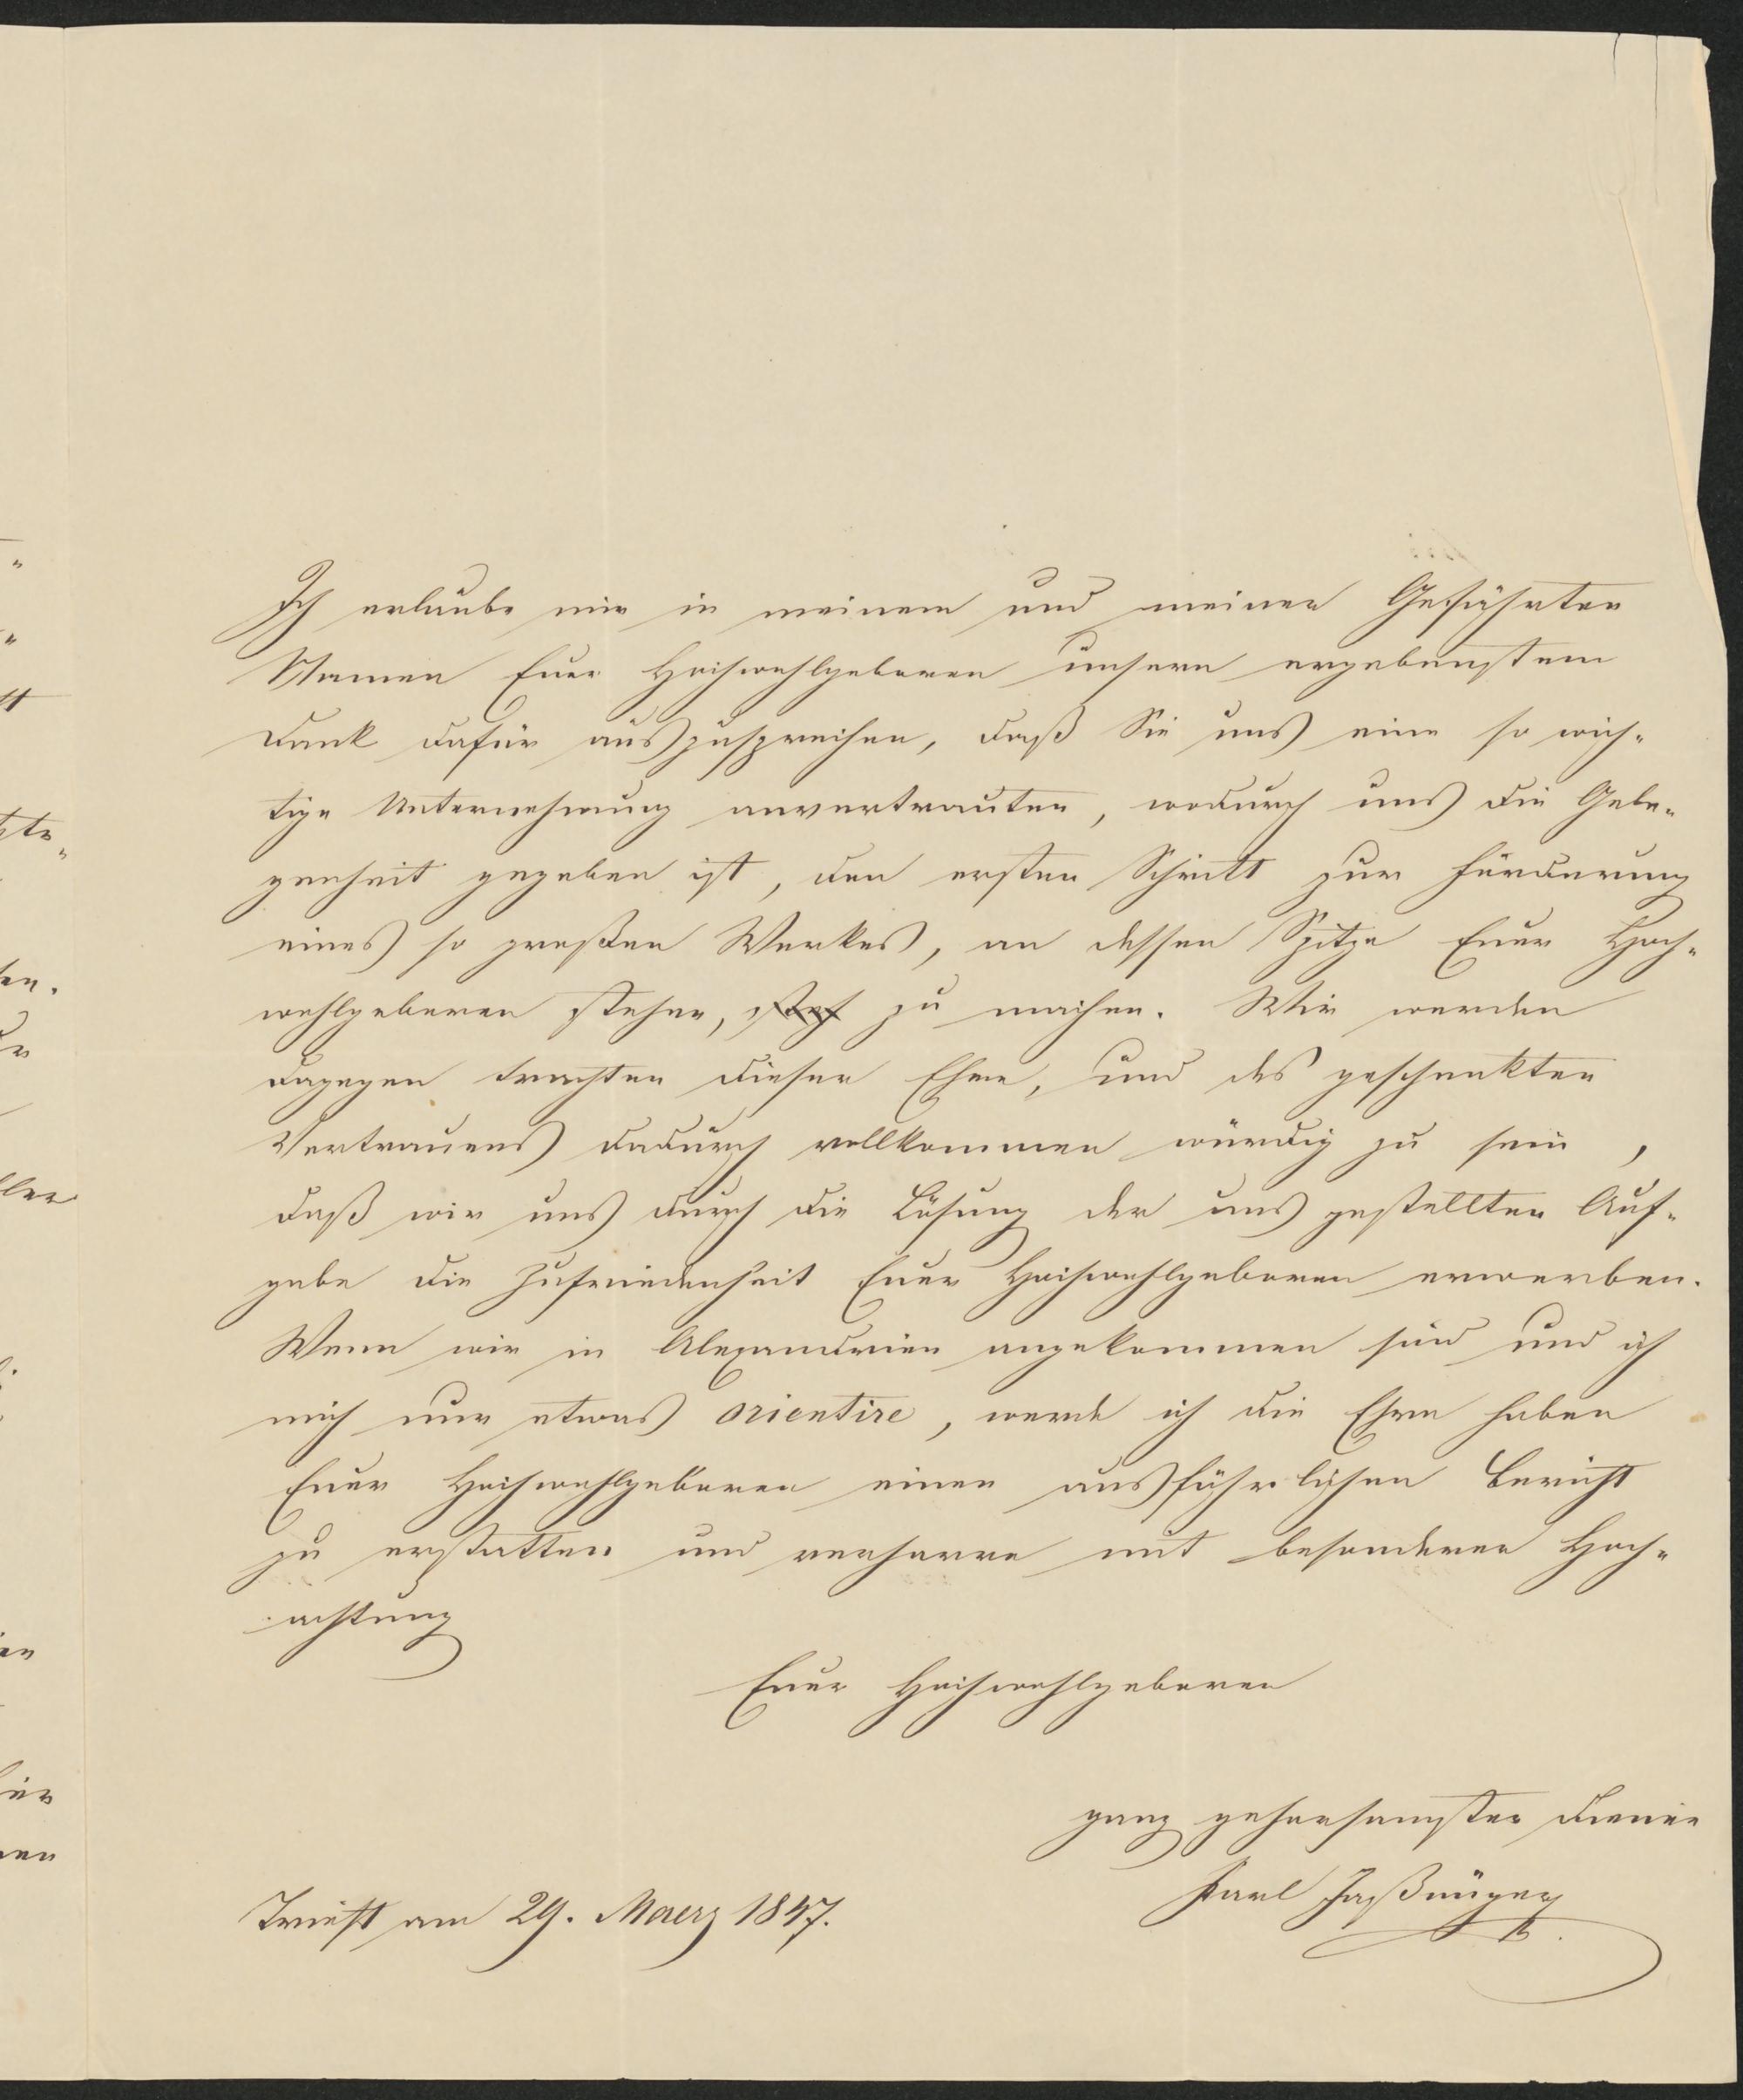 Ich erlaube mir in meinem und meiner Gefährten
Namen Euer Hochwohlgeboren unsern ergebenstem
Dank dafür auszusprechen, daß Sie uns eine so wich-
tige Unternehmung anvertrauten, wodurch uns die Gele-
genheit gegeben ist, den ersten Schritt zur Förderung
eines so großen Werkes, an dessen Spitze Euer Hoch-
wohlgeboren stehen, zu machen. Wir werden
dagegen trachten dieser Ehre, und des geschenkten
Vertrauens dadurch vollkommen würdig zu sein,
daß wir uns durch die Lösung der uns gestellten Auf-
gabe die Zufriedenheit Euer Hochwohlgeboren erwerben.
Wenn wir in Alexandrien angekommen sind und ich
mich nur etwas orientire, werde ich die Ehre haben
Euer Hochwohlgeboren einen ausführlichen Bericht
zu erstatten und verharre mit besonderer Hoch-
achtung
Euer Hochwohlgeboren
ganz gehorsamster Diener
Karl
Triest am 29. Maerz 1847.